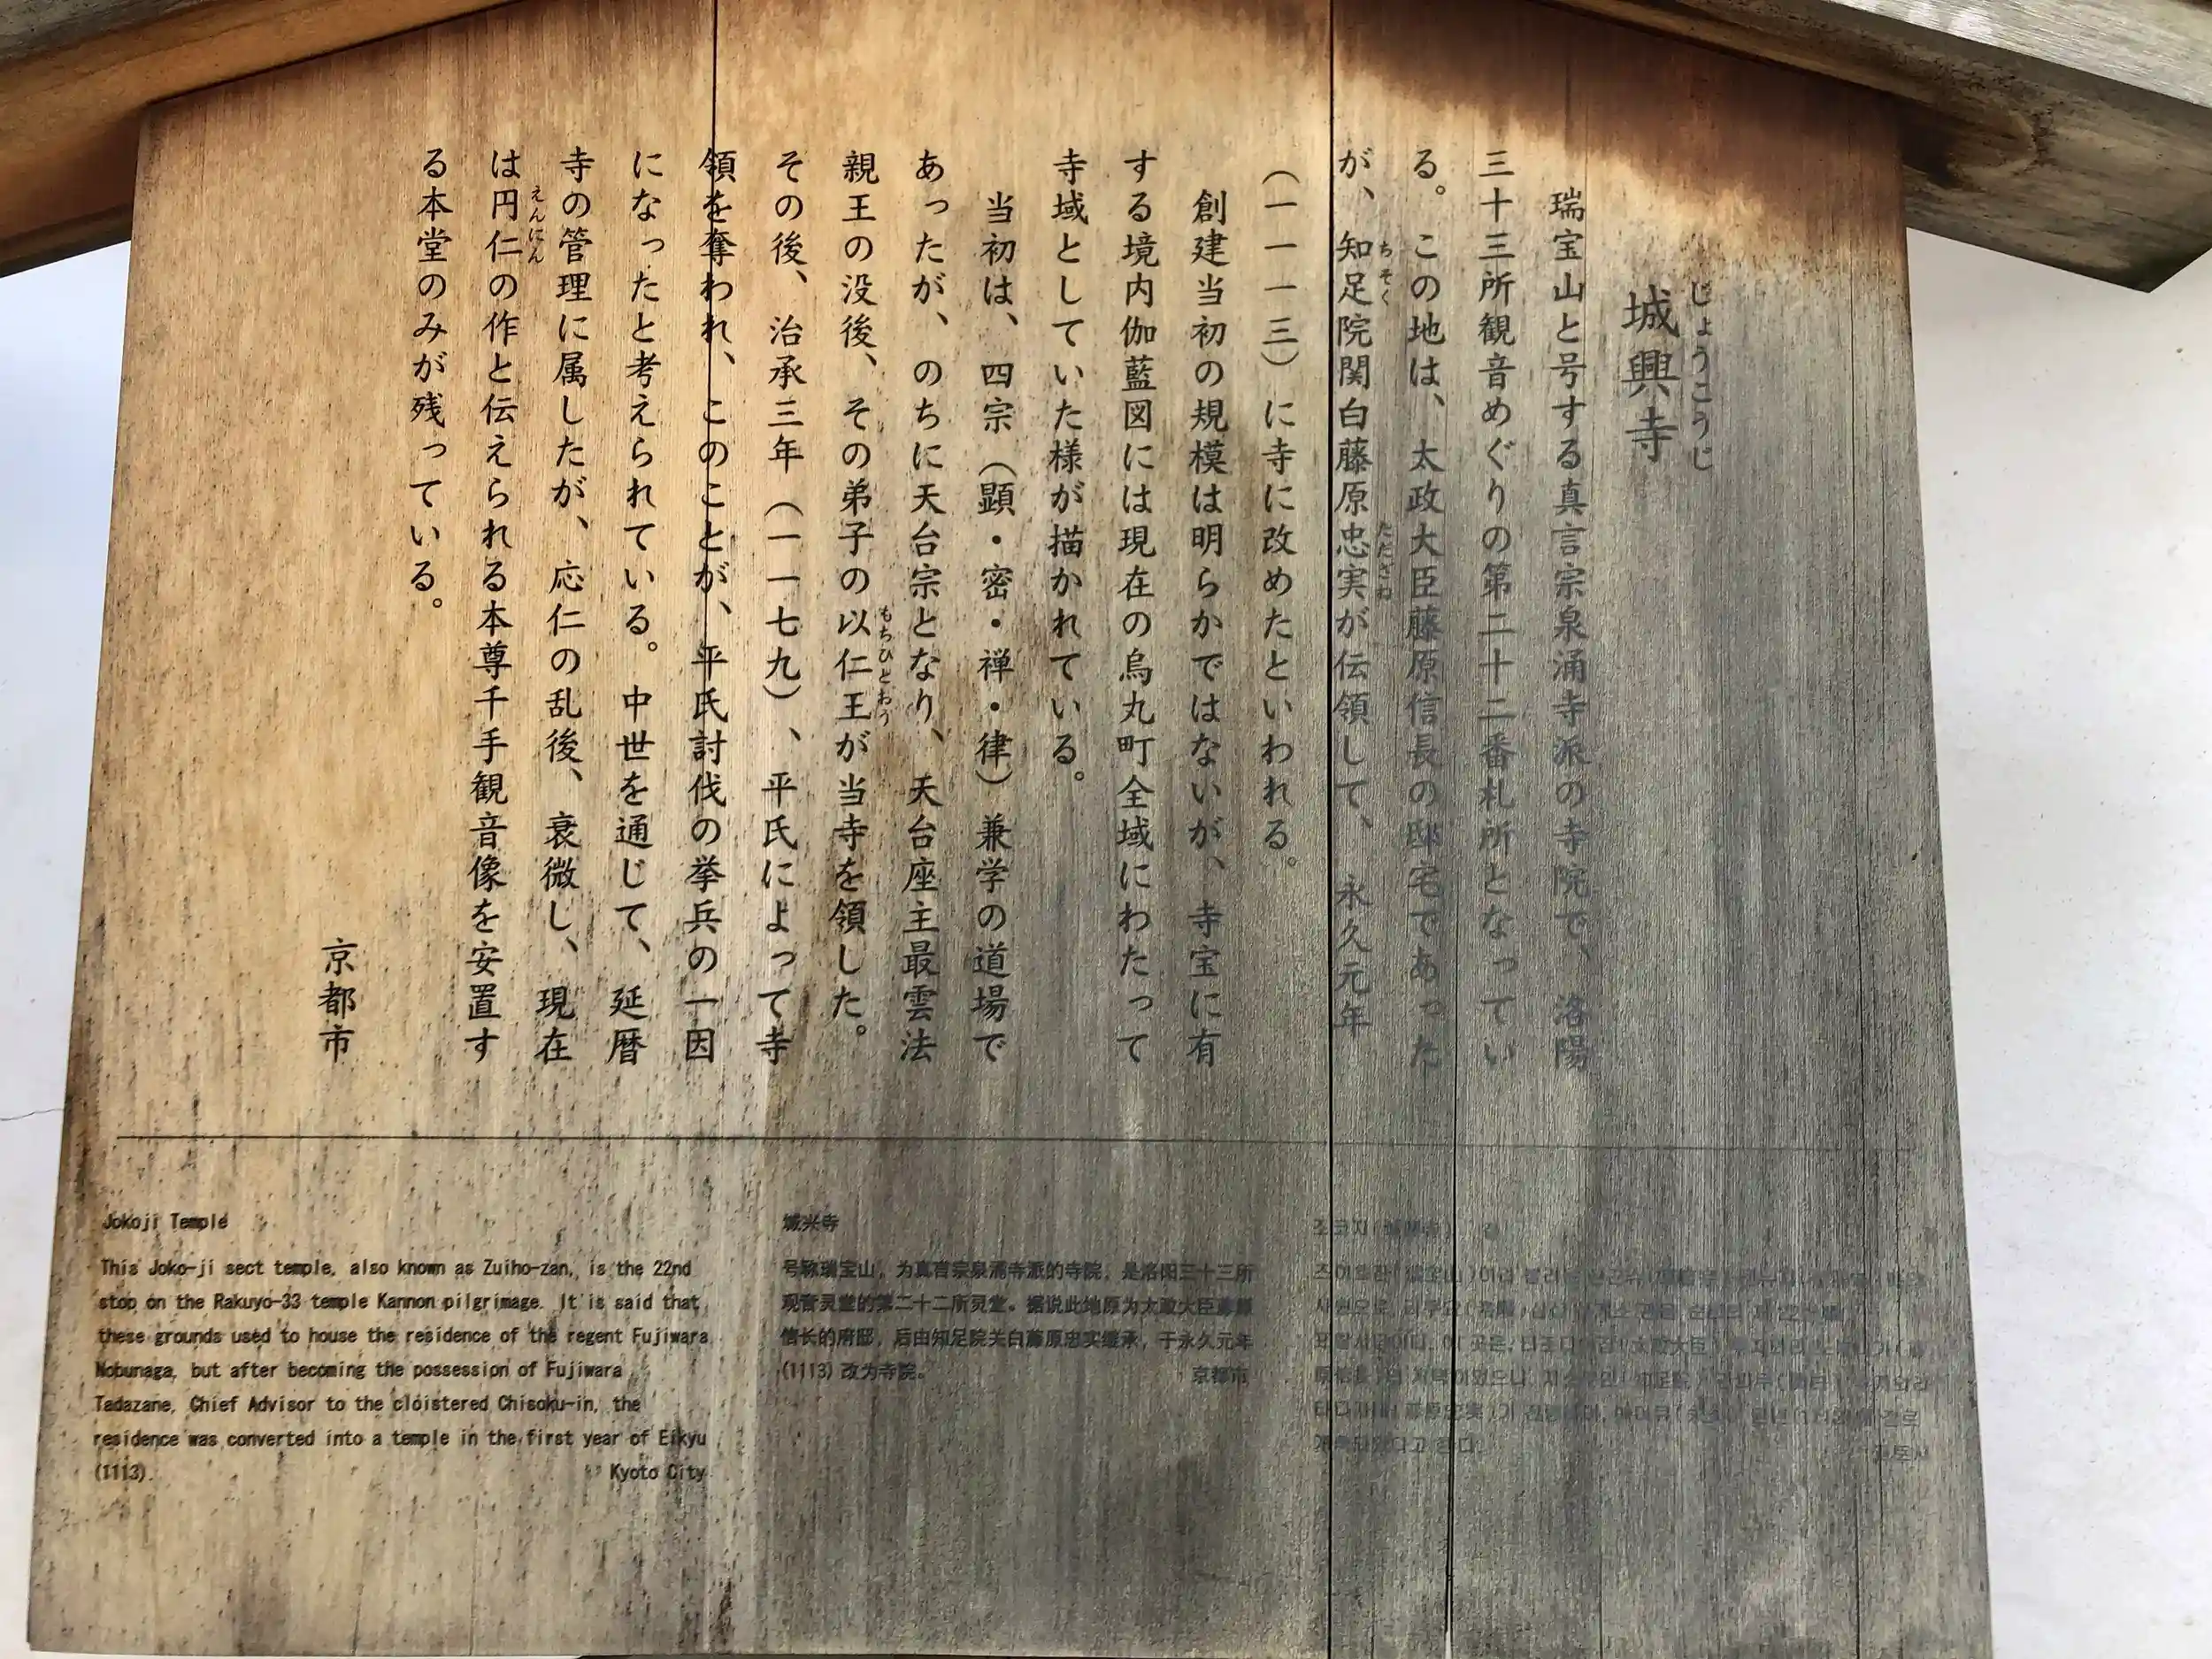 じょうこうじ
城興寺
瑞宝山と号する真言宗泉涌寺派の寺院で、洛陽
三十三所観音めぐりの第二十二番札所となってい
る。この地は、太政大臣藤原信長の邸宅であった
が、知足院関白藤原忠実が伝領して、永久元年
ちそく
ただざね
(一一一三)に寺に改めたといわれる。
創建当初の規模は明らかではないが、寺宝に有
する境内伽藍図には現在の烏丸町全域にわたって
寺域としていた様が描かれている。
当初は、四宗(顕・密・禅・律)兼学の道場で
あったが、のちに天台宗となり、天台座主最雲法
親王の没後、その弟子の以仁王が当寺を領した。
もちひとおう
その後、治承三年(一一七九)、平氏によって寺
領を奪われ、このことが、平氏討伐の挙兵の一因
になったと考えられている。中世を通じて、延暦
寺の管理に属したが、応仁の乱後、衰微し、現在
は円仁の作と伝えられる本尊千手観音像を安置す
えんにん
る本堂のみが残っている。
京都市
Jokoji Temple
This Joko-ji sect temple, also known as Zuiho-zan, is the 22nd
stop on the Rakuyo-33 temple Kannon pilgrimage. It is said that
these grounds used to house the residence of the regent Fujiwara
Nobunaga, but after becoming the possession of Fujiwara
Tadazane, Chief Advisor to the cloistered Chisoku-in, the
residence was converted into a temple in the first year of Eikyu
(1113). Kyoto City
城兴寺
号称瑞宝山，为真言宗泉涌寺派的寺院，是洛阳三十三所
观音灵堂的第二十二所灵堂。据说此地原为太政大臣藤原
信长的府邸，后由知足院关白藤原忠实继承，于永久元年
(1113)改为寺院。 京都市